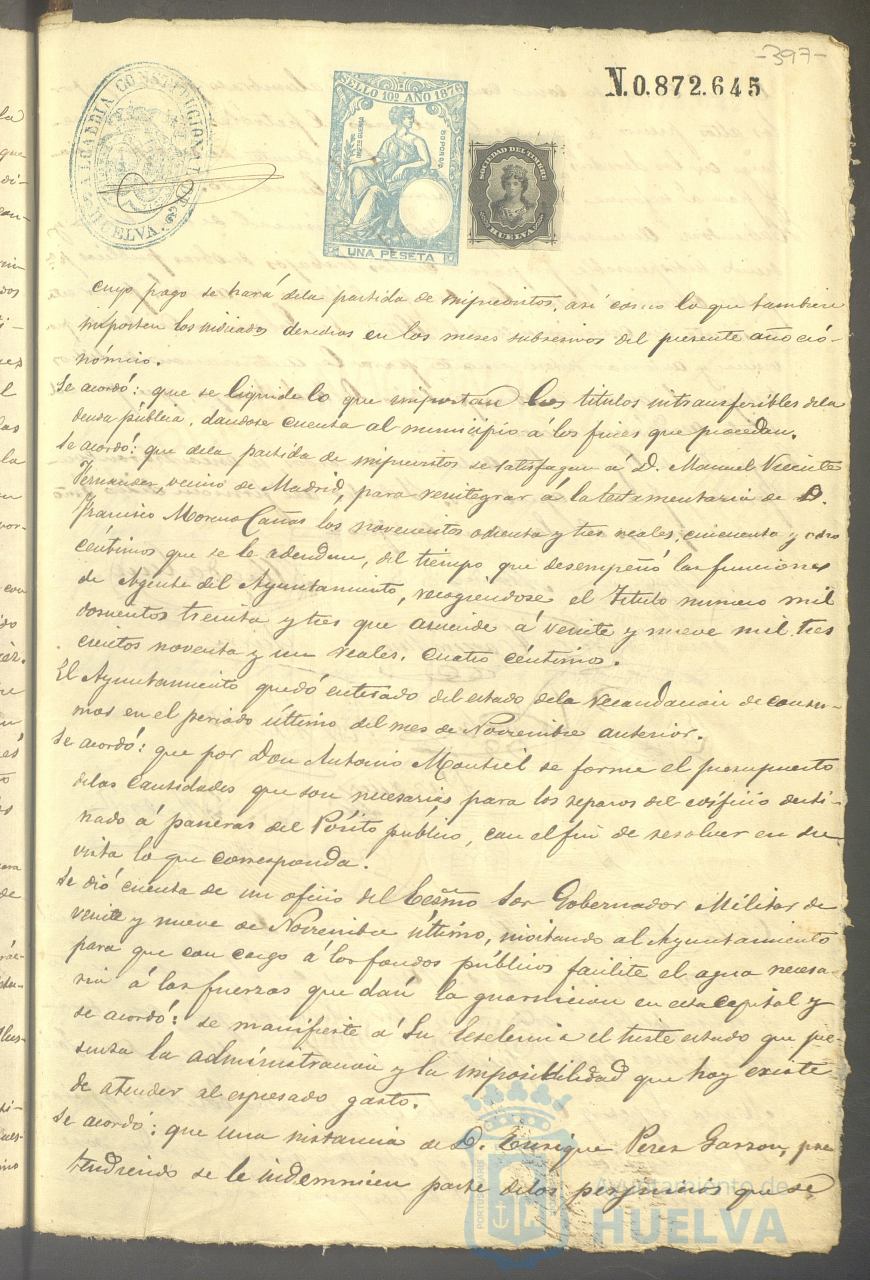 -397-
N.0.872.645
ALCALDIA CONSTITUCIONAL DE HUELVA.
SELLO 10º AÑO 1876
IMPTO GUERRA
50 POR 0/0
UNA PESETA
SOCIEDAD DEL TIMBRE
HUELVA
cuyo pago se hará dela partida de imprevistos, así como lo que tambien
importen los indicados derechos en los meses subsesivos del presente año eco-
nómico.
Se acordó: que se liquide lo que importan los titulos intransferibles dela
deuda pública, dandose cuenta al municipio á los fines que procedan.
Se acordó: que dela partida de imprevistos se satisfagan á D. Manuel Vicente
Fernandez, vecino de Madrid, para reintegrar á la testamentaria de D.
Francisco Moreno Cañas los novecientos ochenta y tres reales, cincuenta y ocho
céntimos que se le adeudan, del tiempo que desempeñó las funciones
de Agente del Ayuntamiento, recogiendose el Titulo numero mil
doscientos treinta y tres que asciende á veinte y nueve mil tres
cientos noventa y un reales, cuatro céntimos.
El Ayuntamiento quedó enterado del estado dela recaudacion de consu-
mos en el periodo último del mes de Noviembre anterior.
Se acordó: que por Don Antonio Montiel se forme el presupuesto
delas cantidades que son necesarias para los reparos del edificio desti-
nado á paneras del Pósito público, con el fin de resolver en su
vista lo que corresponda.
Se dió cuenta de un oficio del Ecsmo Sor Gobernador Militar de
veinte y nueve de Noviembre último, invitando al Ayuntamiento
para que con cargo á los fondos públicos facilite el agua necesa-
ria á las fuerzas que dan la guarnicion en esta Capital y
se acordó: se manifieste á Su Escelencia el triste estado que pre-
senta la administracion y la imposibilidad que hoy existe
de atender al espresado gasto.
Se acordó: que una instancia de D. Enrique Perez Garzon, pre
tendiendo se le indemnicen parte delos perjuicios que se
PORTUS MARIS
Ayuntamiento de
HUELVA